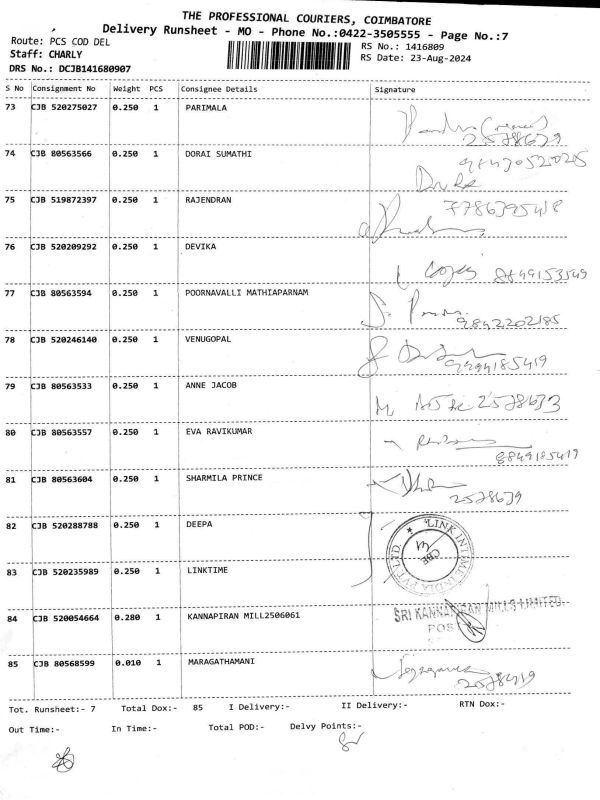 THE PROFESSIONAL COURIERS, COIMBATORE
Delivery Runsheet - MO - Phone No.:0422-3505555 - Page No.:7
Route: PCS COD DEL
RS No.: 1416809
Staff: CHARLY
RS Date: 23-Aug-2024
DRS No.: DCJB141680907
S No Consignment No Weight PCS Consignee Details Signature
73 CJB 520275027 0.250 1 PARIMALA
25786739
74 CJB 80563566 0.250 1 DORAI SUMATHI
75 CJB 519872397 0.250 1 RAJENDRAN
76 CJB 520209292 0.250 1 DEVIKA
77 CJB 80563594 0.250 1 POORNAVALLI MATHIAPARNAM
9842202185
78 CJB 520246140 0.250 1 VENUGOPAL
79 CJB 80563533 0.250 1 ANNE JACOB
80 CJB 80563557 0.250 1 EVA RAVIKUMAR
8849185419
81 CJB 80563604 0.250 1 SHARMILA PRINCE
82 CJB 520288788 0.250 1 DEEPA
LINK INTIME INDIA PVT LTD.
CBE
83 CJB 520235989 0.250 1 LINKTIME
84 CJB 520054664 0.280 1 KANNAPIRAN MILL2506061
85 CJB 80568599 0.010 1 MARAGATHAMANI
Tot. Runsheet:- 7 Total Dox:- 85 I Delivery:- II Delivery:- RTN Dox:-
Out Time:- In Time:- Total POD:- Delvy Points:-